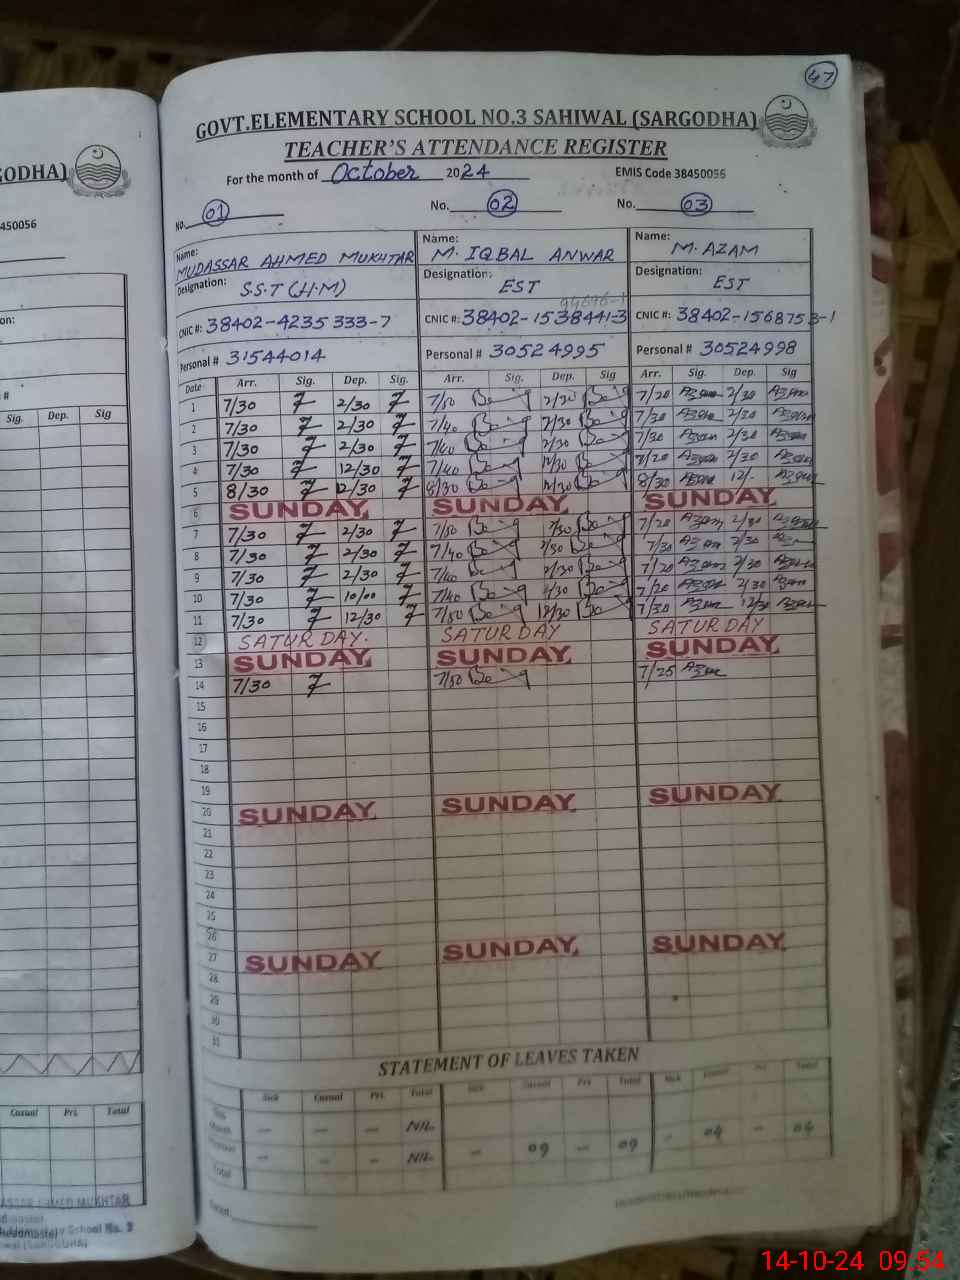 47
GOVT.ELEMENTARY SCHOOL NO.3 SAHIWAL (SARGODHA)
TEACHER'S ATTENDANCE REGISTER
For the month of October 2024 EMIS Code 38450056
No. 01 No. 02 No. 03
Name: MUDASSAR AHMED MUKHTAR Name: M. IQBAL ANWAR Name: M. AZAM
Designation: S.S.T (H.M) Designation: EST Designation: EST
CNIC #: 38402-4235333-7 CNIC #: 38402-1538441-3 CNIC #: 38402-1568753-1
Personal # 31544014 Personal # 30524995 Personal # 30524998
Date Arr. Sig. Dep. Sig. Arr. Sig. Dep. Sig Arr. Sig. Dep. Sig
1 7/30 2/30 7/50 2/30 7/20 Azam 2/30 Azam
2 7/30 2/30 7/40 2/30 7/30 Azam 2/30 Azam
3 7/30 2/30 7/40 2/30 7/30 Azam 2/30 Azam
4 7/30 12/30 7/40 12/30 7/20 Azam 2/30 Azam
5 8/30 12/30 8/30 12/30 8/30 Azam 12/- Azam
6 SUNDAY SUNDAY SUNDAY
7 7/30 2/30 7/50 2/30 7/20 Azam 2/30 Azam
8 7/30 2/30 7/40 2/30 7/30 Azam 2/30
9 7/30 2/30 7/40 2/30 7/20 Azam 2/30 Azam
10 7/30 10/00 7/40 2/30 7/20 Azam 2/30 Azam
11 7/30 12/30 7/50 12/30 7/30 Azam 12/30 Azam
12 SATURDAY. SATURDAY SATURDAY
13 SUNDAY SUNDAY SUNDAY
14 7/30 7/50 7/25 Azam
15
16
17
18
19
20 SUNDAY SUNDAY SUNDAY
21
22
23
24
25
26
27 SUNDAY SUNDAY SUNDAY
28
29
30
STATEMENT OF LEAVES TAKEN
Sick Casual Pri. Total Sick Casual Pri Total Sick Casual Pri Total
This Month - - - NIL
Previous - - - NIL - 09 - 09 - 04 - 04
Total
GODHA)
450056
on:
#
Sig. Dep. Sig
Casual Pri. Total
ASSAR AHMED MUKHTAR
Headmaster
School No. 3
14-10-24 09:54